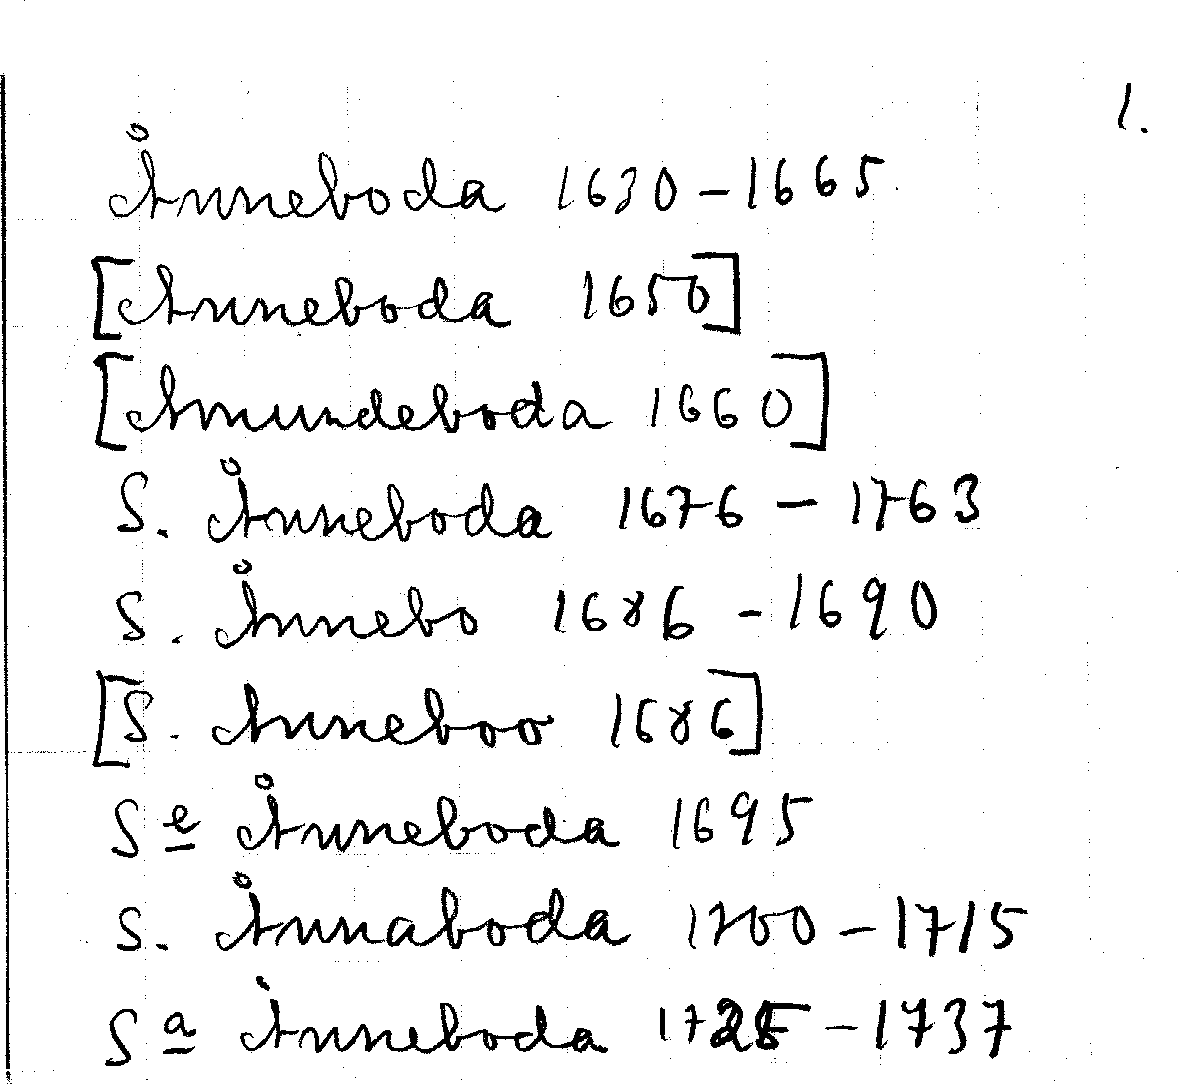 1.
Ånneboda 1630-1665
[Anneboda 1650]
[Amundeboda 1660]
S. Ånneboda 1676 - 1763
S. Ånnebo 1686 - 1690
[S. Anneboo 1686]
Se Ånneboda 1695
S. Ånnaboda 1700 - 1715
Sa Ånneboda 1725 - 1737